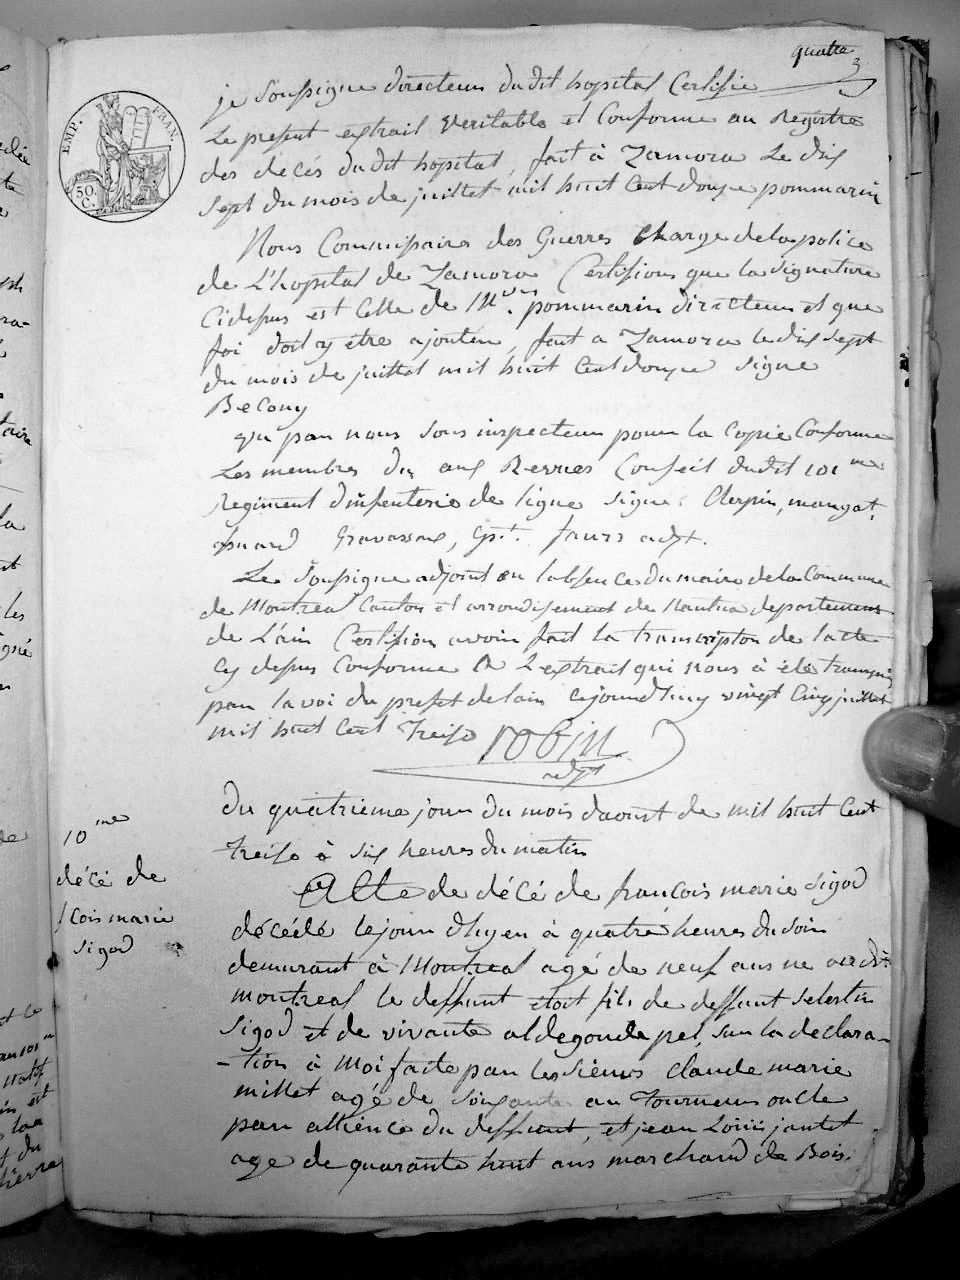 quatre
3
EMP. FRAN.
50 C.
je soussigne directeur du dit hopital Certifie
Le present extrait veritable et Conforme au Registre
des decés du dit hopital, fait à Zamora Le dix
sept du mois de juillet mil huit Cent douze pommarin
Nous Commissaire des Guerres Charge de la police
de L'hopital de Zamora Certifions que la signature
Cidessus est Celle de Mr. pommarin directeur et que
foi doit y etre ajouter, fait a Zamora le dix sept
du mois de juillet mil huit Cent douze signe
Becony
vu par nous sous inspecteur pour la Copie Conforme
Les membres du Conseil dudit 101me
Regiment d'infenterie de ligne signe: mangat,
adjt.
Le Soussigne adjoint en labsence du maire de la Commune
de Montreal Canton et arrondissement de Nantua departement
de L'ain Certifion avoir fait la transcription de lacte
Cy dessus Conforme a L'extrait qui nous à été transmis
par la voi du prefet de lain cejourdhuy vingt Cinq juillet
mil huit Cent treise robin
adjt
10me
décé de
fcois marie
sigod
du quatrieme jour du mois daoust de mil huit Cent
treise à six heures du matin
Acte de décé de francois marie sigod
décédé le jour dhyer à quatre heures du soir
demurant à Montreal agé de neuf ans ne audit
montreal le deffunt etoit fils de deffunt selestin
sigod et de vivante aldegonde pel, sur la declara-
-tion à moi faite par les sieurs claude marie
millet agé de soixante an tourneur oncle
par allience du deffunt, et jean Louis jantet
age de quarante huit ans marchand de Bois.